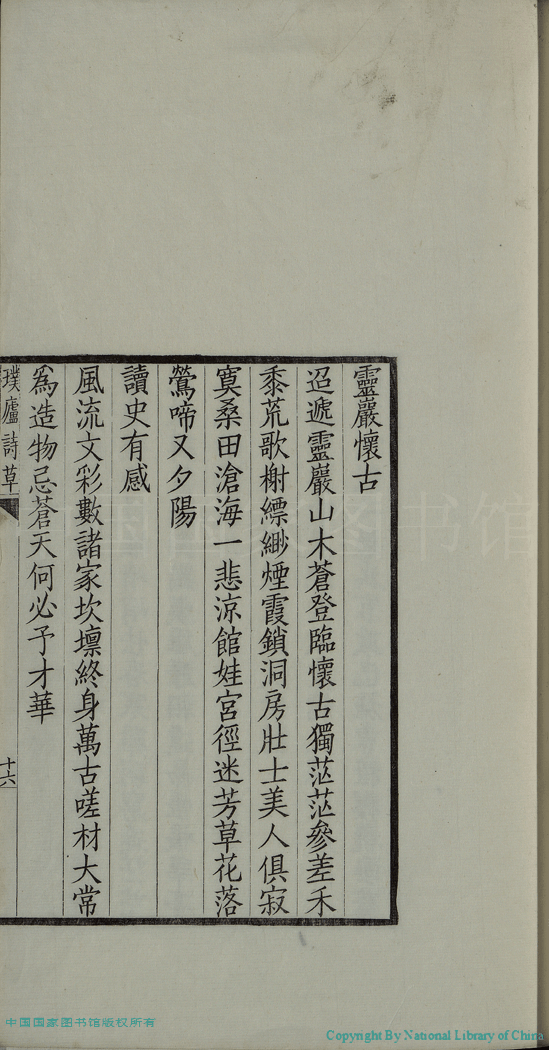 靈巖懷古
迢遞靈巖山木蒼登臨懷古獨茫茫參差禾
黍荒歌榭縹緲煙霞鎖洞房壯士美人俱寂
寞桑田滄海一悲涼館娃宮徑迷芳草花落
鶯啼又夕陽
讀史有感
風流文彩數諸家坎壈終身萬古嗟材大常
為造物忌蒼天何必予才華
璞廬詩草
十六
中国国家图书馆版权所有
Copyright By National Library of China